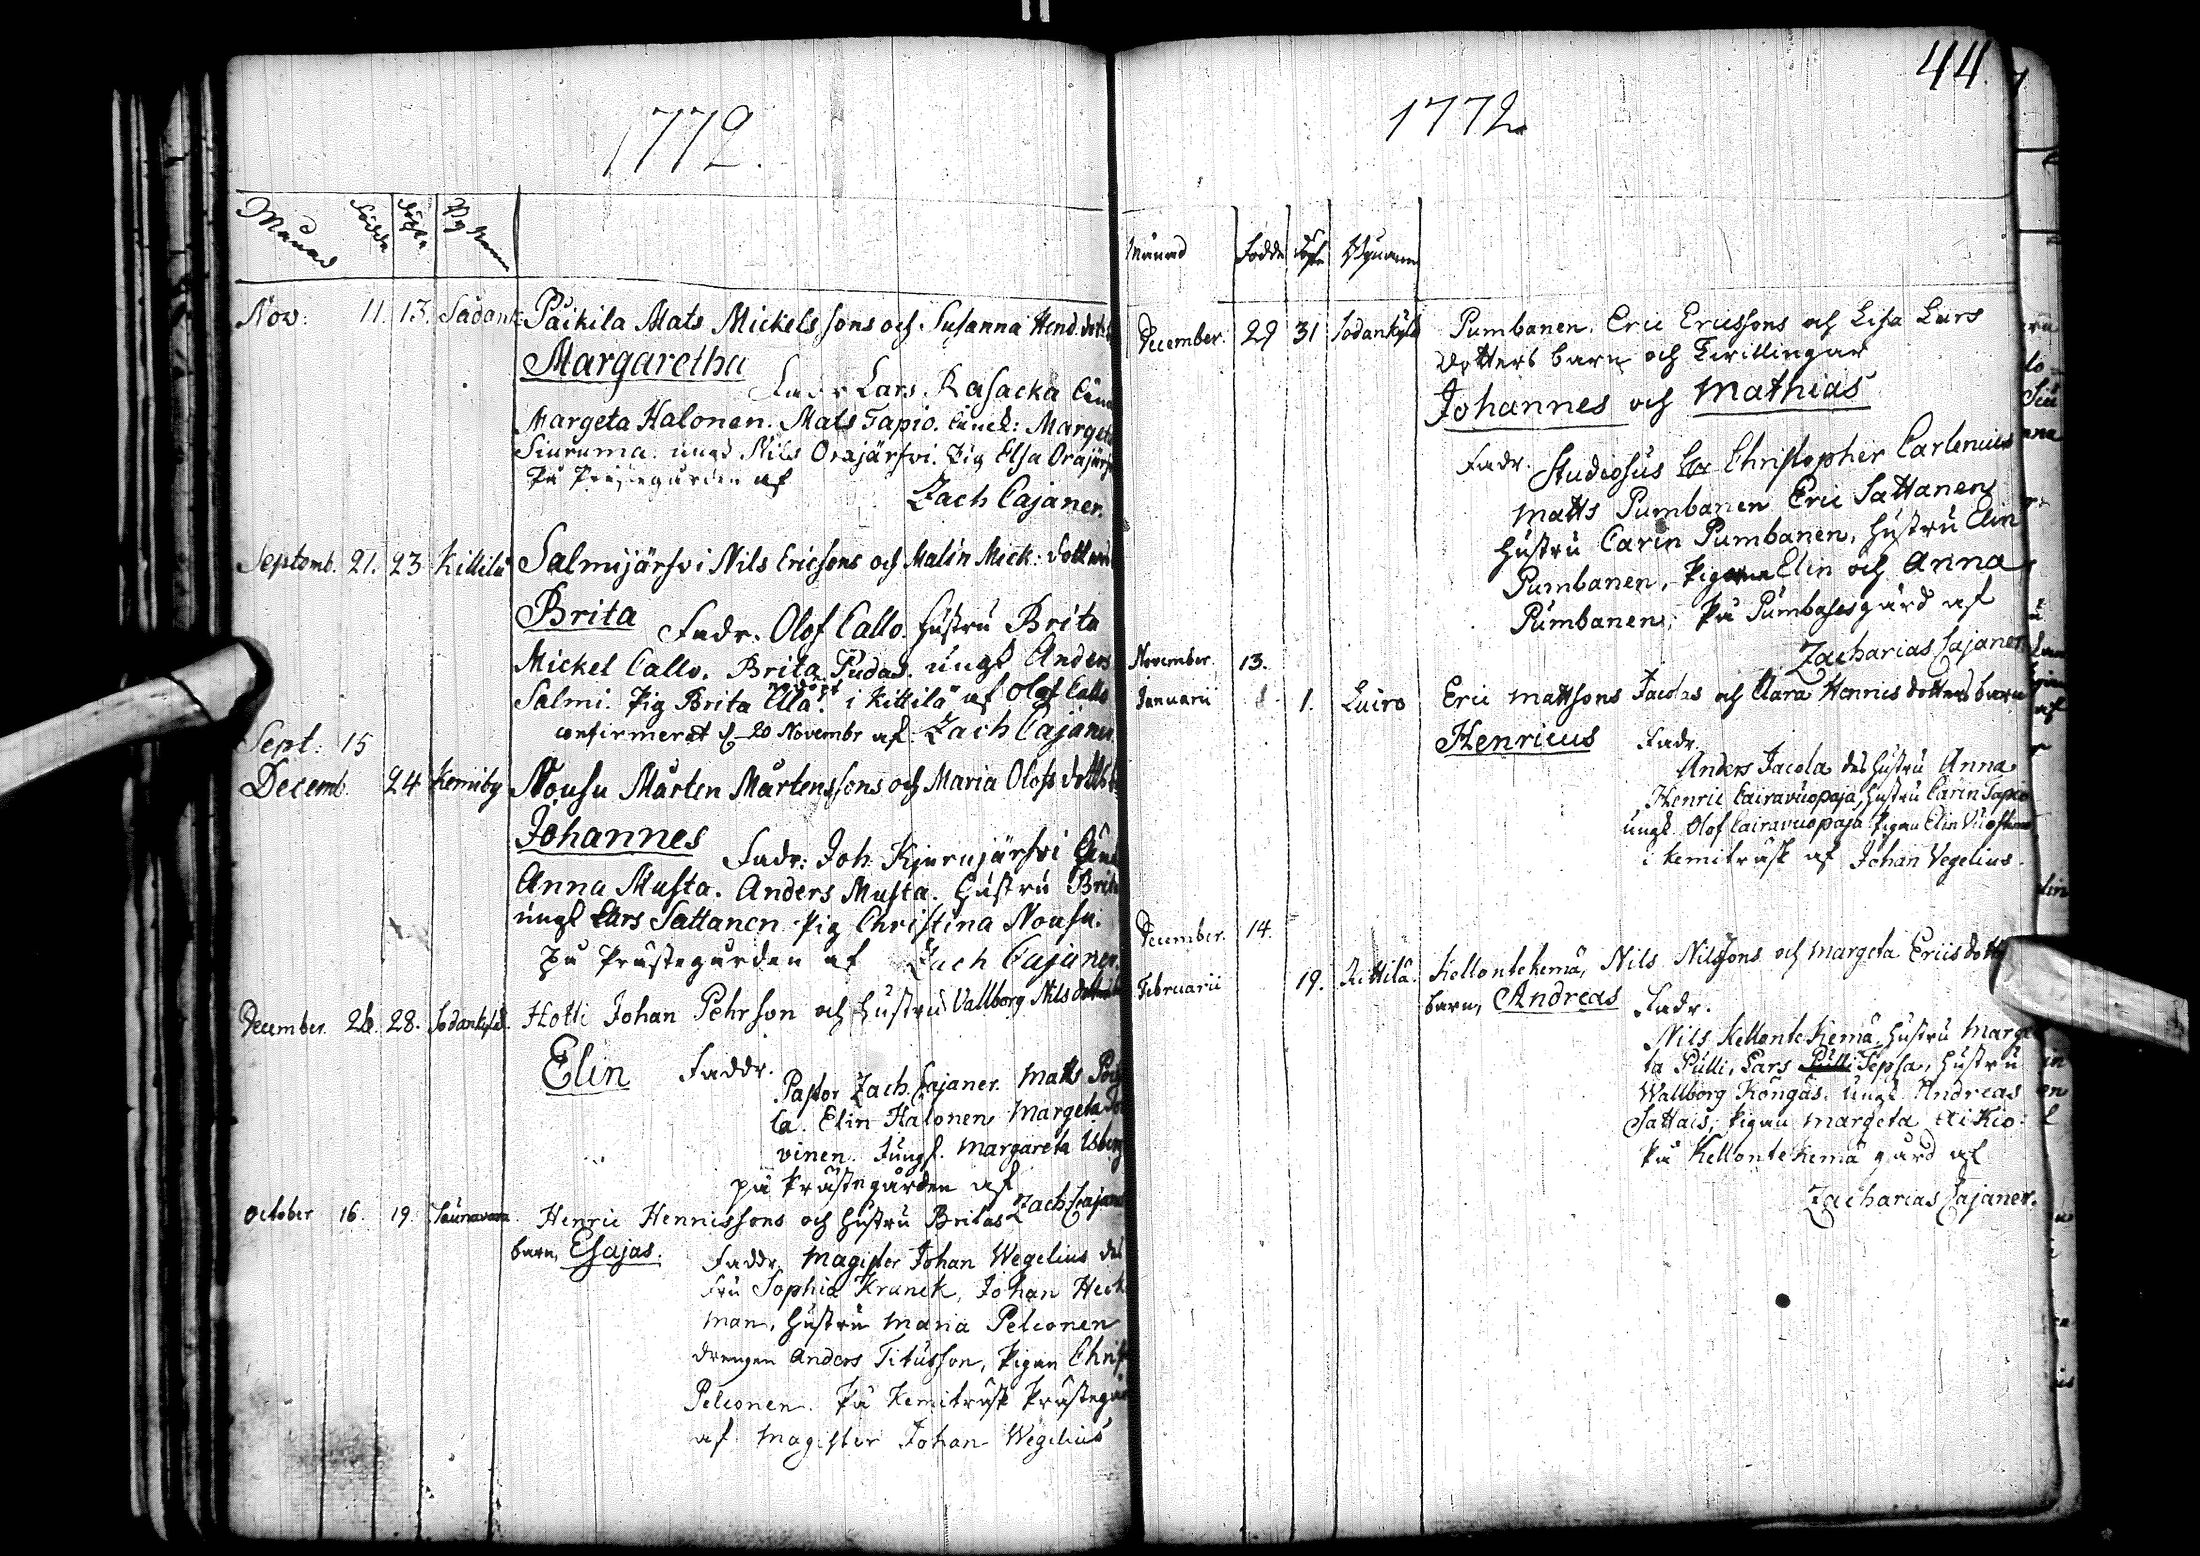 1772.
Månad Födde Döpte Bynamn
Nov: 11. 13. Sodank: Päikila Mats Mickelssons och Susanna Hend. dott:
Margaretha
Fadr Lars Kasacka
Margeta Halonen. Mats Tapio. Margeta
Siuruma. ungd Nils Orajärfvi. Pig Elsa Orajärfvi
På Prästegården af
Zach Cajaner.
Septemb. 21. 23 Kittilä Salmijärfvi Nils Ericsons och Malin Mick: dotters
Brita Fadr. Olof Callo. Hustru Brita
Mickel Callo. Brita Pudas. ungd Anders
Salmi. Pig Brita Ylla. nöddöpt i Kittilä af Olof Callo
confirmerat d. 20 Novembr af Zach Cajaner.
Sept: 15
Decemb. 24 Kemiby Nousu Mårten Mårtenssons och Maria Olofs dotters
Johannes Fadr: Joh. Kjerujärfvi
Anna Musta. Anders Musta. Hustru Brita
ungk Lars Sattanen Pig Christina Nousu.
På Prästegården af Zach Cajaner.
December. 26. 28. Sodankylä. Hotti Johan Pehrson och Hustru Vallborg Nils dotters
Elin Faddr.
Pastor Zach. Cajaner. Matts
la. Elin Halonen, Margeta
vinen. Jungf. Margareta
på Prästegården af
Zach Cajaner
October 16. 19. Henric Hennissons och Hustru Britas
barn, Esajas. Faddr. Magister Johan Wegelius des
Fru Sophia Kranck, Johan Heck
man, Hustru Maria Pelconen
drengen Anders Titusson, Pigan Christ
Pelconen. På Kemiträsk Prästegård
af Magister Johan Wegelius
44.
1772
Månad Födde Döpte Bynamn
December. 29 31 Sodankylä Pumbanen. Eric Ericssons och Lisa Lars
dotters barn och Twillingar
Johannes och Mathias
Fadr. Studiosus Christopher Carlenius
Matts Pumbanen Eric Sattanen
Hustru Carin Pumbanen, Hustru Elin
Pumbanen, Pigorna Elin och Anna
Pumbanen, På Pumbasgård af
Zacharias Cajaner.
November. 13.
Januarii 1. Luiro Eric Mattsons Jacolas och Clara Hennis dotters barn
Henricus Fadr.
Anders Jacola des Hustru Anna
Henric Cairavuopaja, Hustru Carin Tapio
ungk. Olof Cairavuopaja Pigan Elin
i Kemiträsk af Johan Vegelius.
December. 14.
Februarii 19. Kittilä. Kellontekemä, Nils Nilssons och Margeta Ericsdott
barn, Andreas Fadr.
Nils Kellontekemä, Hustru Marge
ta Pulli, Lars Pulli Tepsa, Hustru
Wallborg Kongäs. ungk. Andreas
Sattais, Pigan Margeta Aikio:
På Kellontekemä gård af
Zacharias Cajaner.